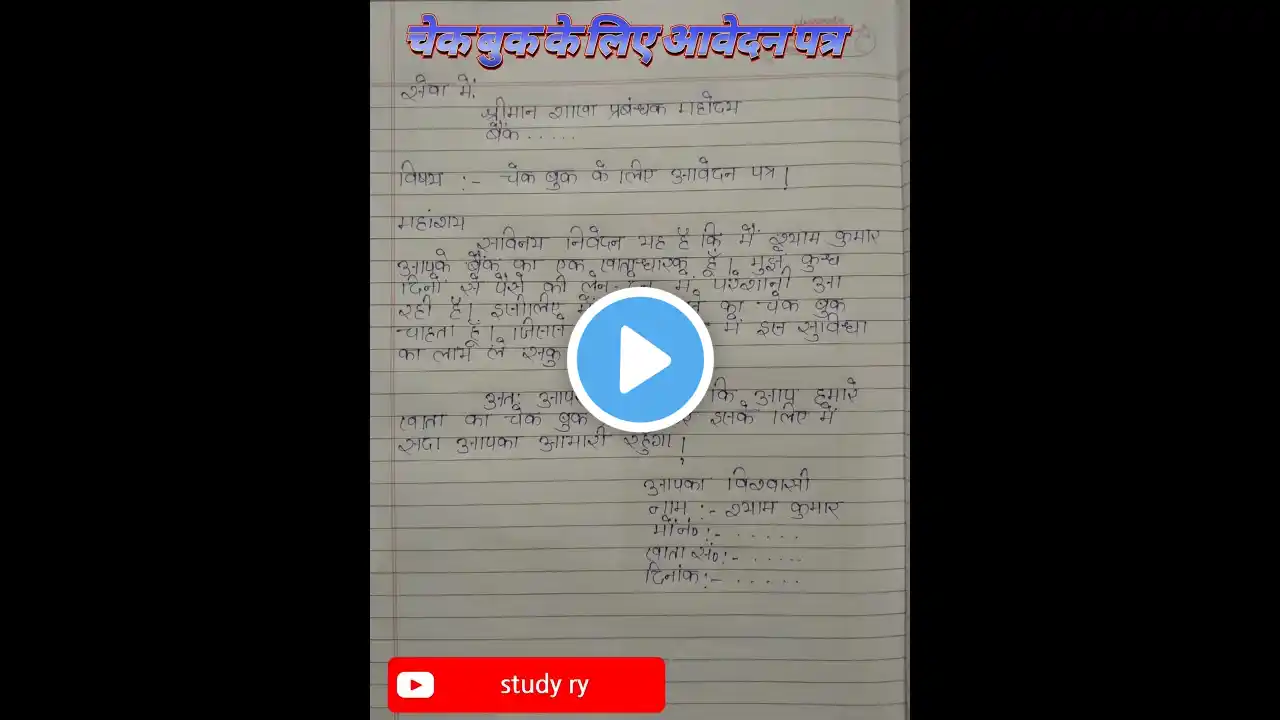 चेक बुक के लिए आवेदन पत्र
सेवा में,
श्रीमान शाखा प्रबंन्धक महोदय
बैंक . . . . .
विषय :- चेक बुक के लिए आवेदन पत्र।
महांशय
सविनय निवेदन यह है कि मैं श्याम कुमार
आपके बैंक का एक खाताधारक हूँ। मुझे कुछ
दिनों से पैसे की लेन- में परेशानी आ
रही है। इसीलिए का चेक बुक
चाहता हूँ। जिससे में इस सुविधा
का लाभ ले सकु
अतः कि आप हमारे
खाता का चेक बुक इसके लिए मैं
सदा आपका आभारी रहुंगा।
आपका विश्वासी
नाम :- श्याम कुमार
मो०नं० :- . . . . . .
खाता सं० :- . . . . .
दिनांक :- . . . . . .
study ry